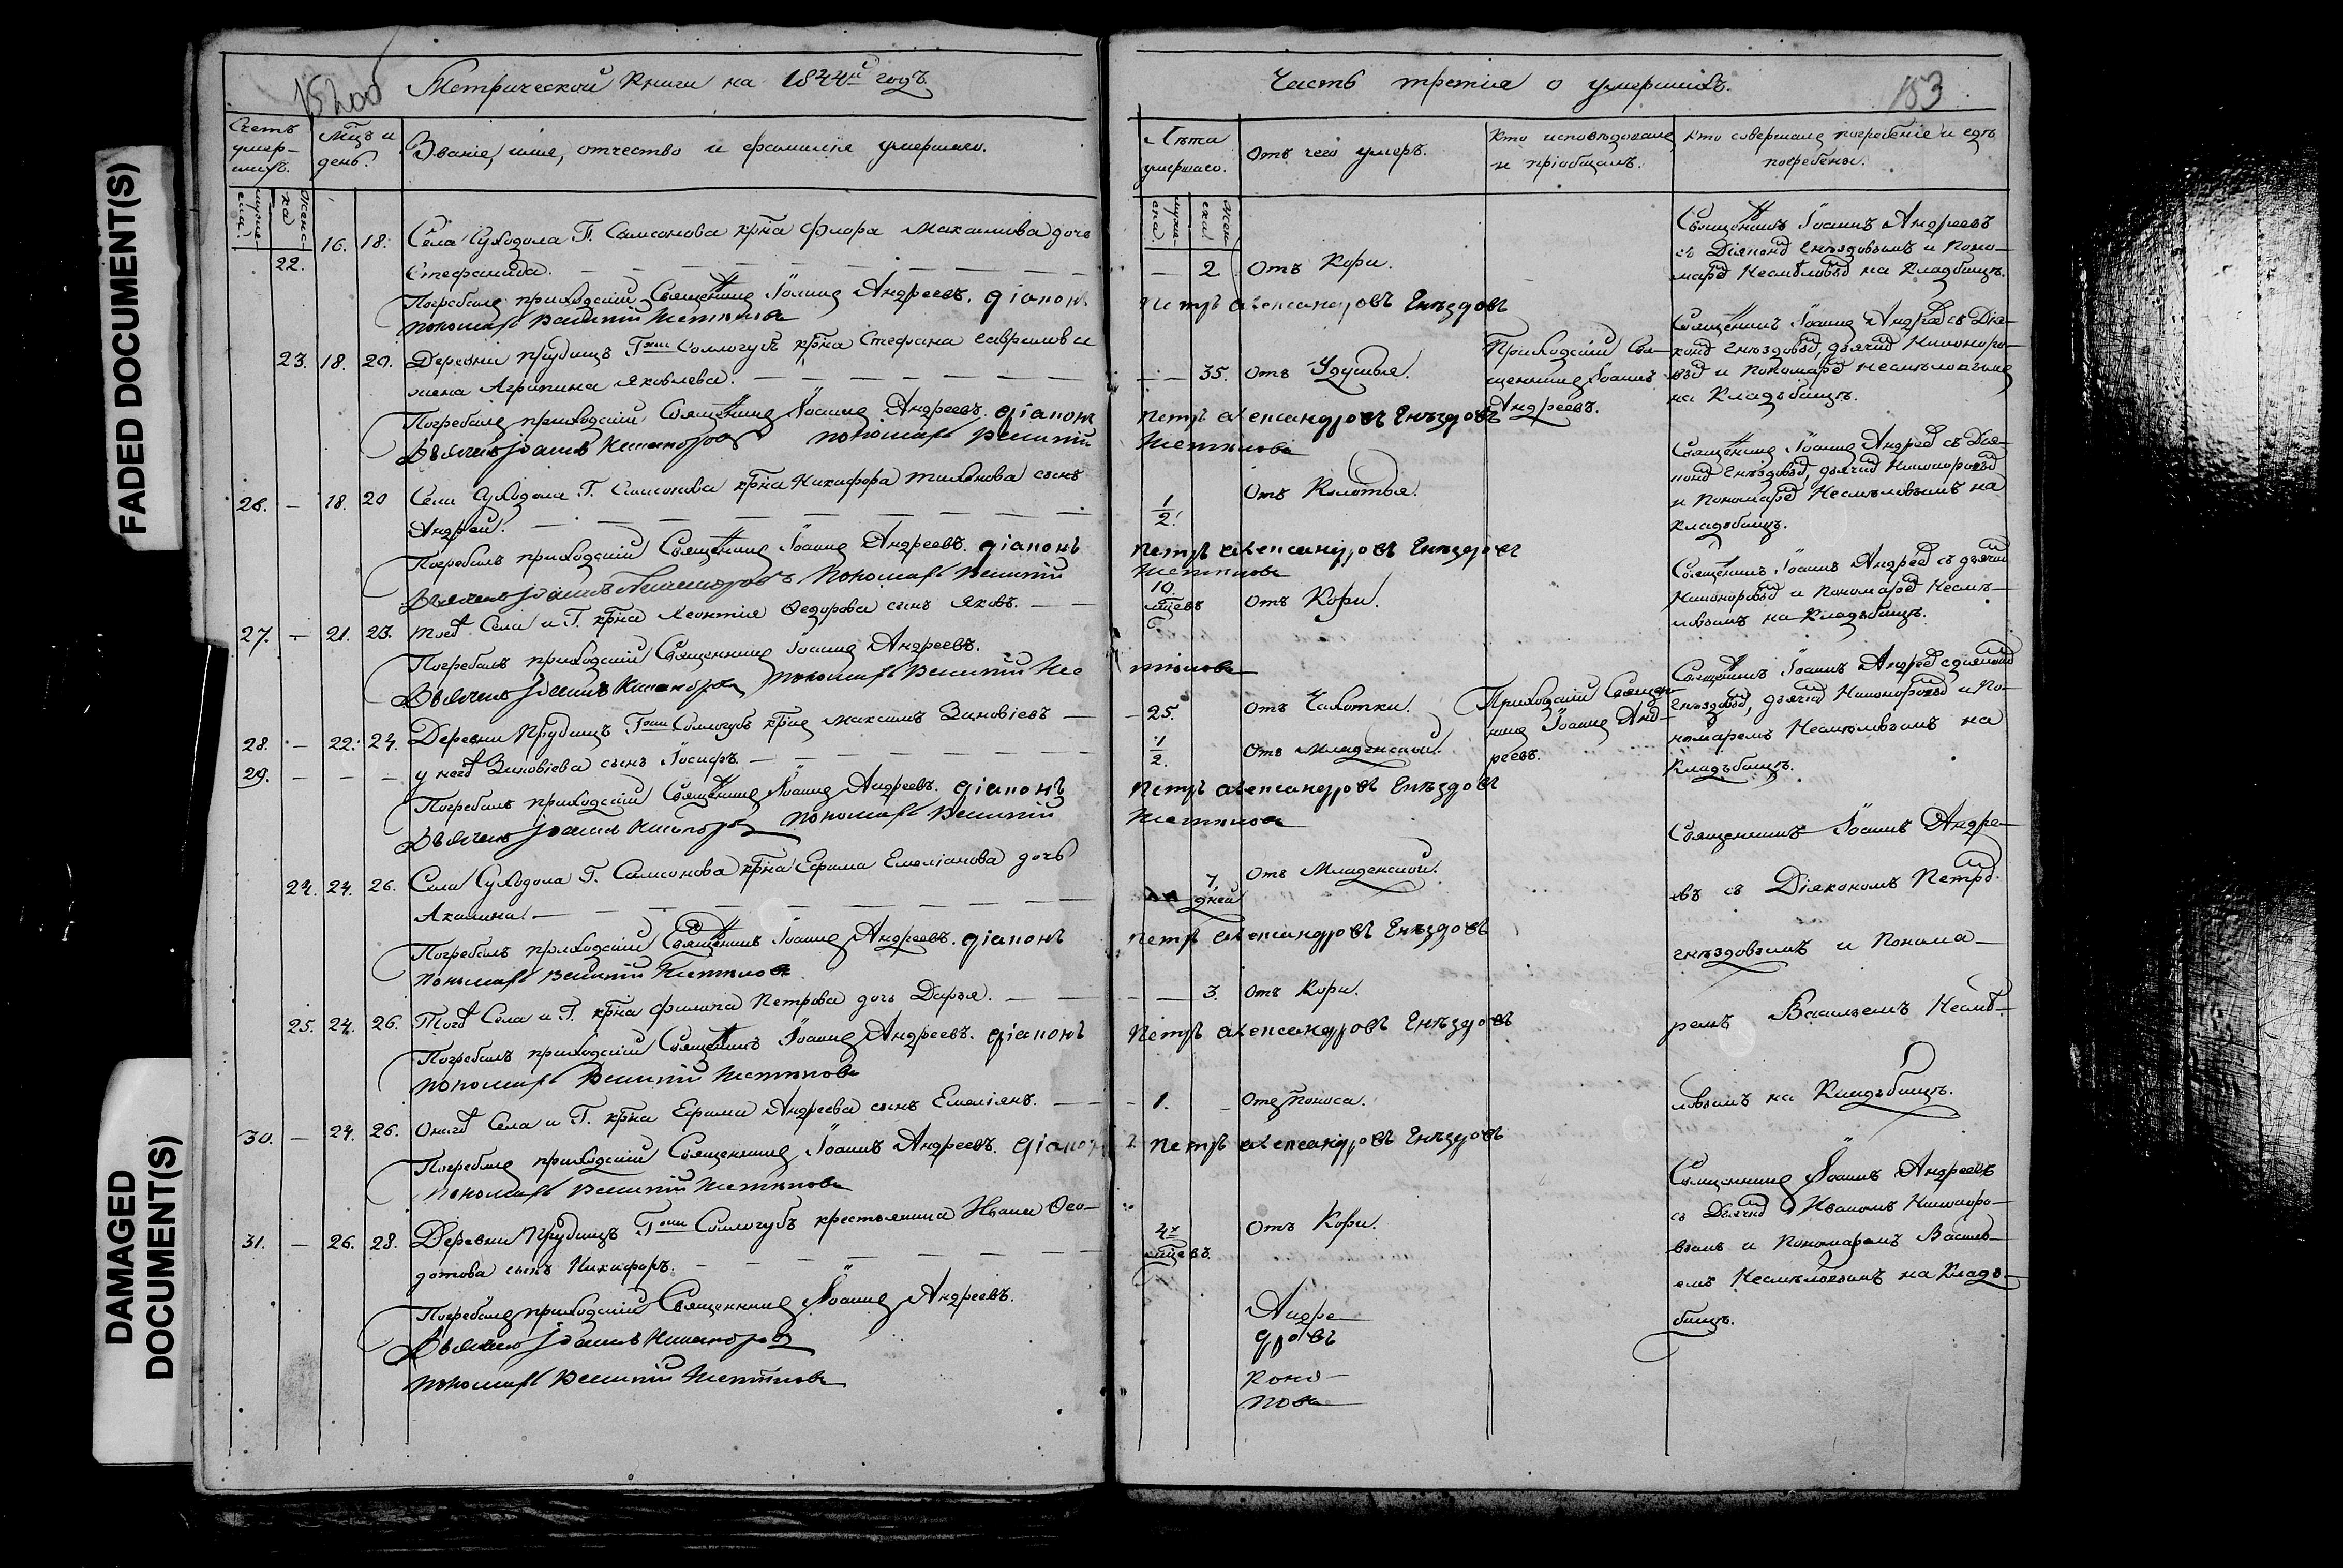 FADED DOCUMENT(S)
DAMAGED DOCUMENT(S)
Метрической книги на 1844й годъ
Счетъ умер-шихъ.
Мцъ и день.
Званіе, имя, отчество и фамилія умершаго.
16. 18. Села Суходола Г. Самсонова крна Флора Максимова дочь
22. Стефанида.
Погребалъ приходскій Священникъ Іоаннъ Андреевъ. діаконъ
пономарь Василій
23. 18. 20. Деревни Прудищъ Гжи Соллогубъ крна Стефана Гаврилова
жена Агрипина Яковлева.
Погребалъ приходскій Священникъ Іоаннъ Андреевъ. діаконъ
Дьячекъ Іоаннъ Никаноровъ пономарь Василій
26. – 18. 20 Села Суходола Г. Самсонова крна Никифора Тихонова сынъ
Андрей.
Погребалъ приходскій Священникъ Іоаннъ Андреевъ. діаконъ
Дьячекъ Іоаннъ Никаноровъ пономарь Василій
27. – 21. 23. Тогож Села и Г. крна Леонтія Федорова сынъ Яковъ.
Погребалъ приходскій Священникъ Іоаннъ Андреевъ.
Дьячекъ Іоаннъ Никаноровъ пономарь Василій
28. – 22. 24. Деревни Прудищъ Гжи Соллогубъ крнъ Максимъ Зиновіевъ
29. – – – у него Зиновіева сынъ Іосифъ
Погребалъ приходскій Священникъ Іоаннъ Андреевъ. діаконъ
Дьячекъ Іоаннъ Никаноровъ пономарь Василій
24. 24. 26. Села Суходола Г. Самсонова крна Ефима Емеліанова дочь
Акилина
Погребалъ приходскій Священникъ Іоаннъ Андреевъ. діаконъ
пономарь Василій
25. 24. 26. Тогож Села и Г. крна Филипа Петрова дочь Дарья.
Погребалъ приходскій Священникъ Іоаннъ Андреевъ. діаконъ
пономарь Василій
30. – 24. 26. Онагож Села и Г. крна Ефима Андреева сынъ Емеліянъ.
Погребалъ приходскій Священникъ Іоаннъ Андреевъ. діаконъ
пономарь Василій
31. – 26. 28. Деревни Прудищъ Гжи Соллогубъ крестьянина Ивана Ѳео-
дотова сынъ Никифоръ.
Погребалъ приходскій Священникъ Іоаннъ Андреевъ.
Дьячекъ Іоаннъ Никаноровъ
пономарь Василій
Часть третія о умершихъ.
183
Лѣта умершаго.
Отъ чего умеръ.
Кто исповѣдовалъ и пріобщалъ.
Кто совершалъ погребеніе и гдѣ погребены.
— 2 Отъ Кори.
Священникъ Іоаннъ Андреевъ
съ Діякономъ Гнѣздовымъ и Поно-
маремъ Несмѣловымъ на Кладбищѣ.
Петръ Александровъ Гнѣздовъ
— 35. Отъ Удушья.
Приходскій Свя-
щенникъ Іоаннъ
Андреевъ.
Священникъ Іоаннъ Андреевъ съ Дія-
кономъ Гнѣздовымъ, дьячкомъ Никоноро-
вымъ и Пономаремъ Несмѣловымъ
на Кладъбищѣ.
Петръ Александровъ Гнѣздовъ
1/2. Отъ Колотья.
Священникъ Іоаннъ Андреевъ съ Дія-
кономъ Гнѣздовымъ, дьячкомъ Никоноровымъ
и Пономаремъ Несмѣловымъ на
Кладъбищѣ.
Петръ Александровъ Гнѣздовъ
10. мцевъ Отъ Кори.
Священникъ Іоаннъ Андреевъ съ дьячкомъ
Никоноровымъ и Пономаремъ Несмѣ-
ловымъ на Кладъбищѣ.
25. Отъ Чахотки.
Приходскій Священ-
никъ Іоаннъ Анд-
реевъ.
1/2. Отъ Младенской.
Священникъ Іоаннъ Андреевъ съ діякономъ
Гнѣздовымъ, дьячкомъ Никоноровымъ и По-
номаремъ Несмѣловымъ на
Кладъбищѣ.
Петръ Александровъ Гнѣздовъ
7. дней Отъ Младенской.
Священникъ Іоаннъ Андре-
евъ съ Діякономъ Петромъ
Гнѣздовымъ и Понома-
ремъ Васильемъ Несмѣ-
ловымъ на Кладъбищѣ.
Петръ Александровъ Гнѣздовъ
— 3. Отъ Кори.
Петръ Александровъ Гнѣздовъ
1. Отъ Поноса.
Петръ Александровъ Гнѣздовъ
4х мцевъ. Отъ Кори.
Священникъ Іоаннъ Андреевъ
съ Дьячкомъ Иваномъ Никоноро-
вымъ и Пономаремъ Василь-
емъ Несмѣловымъ на Кладъ-
бищѣ.